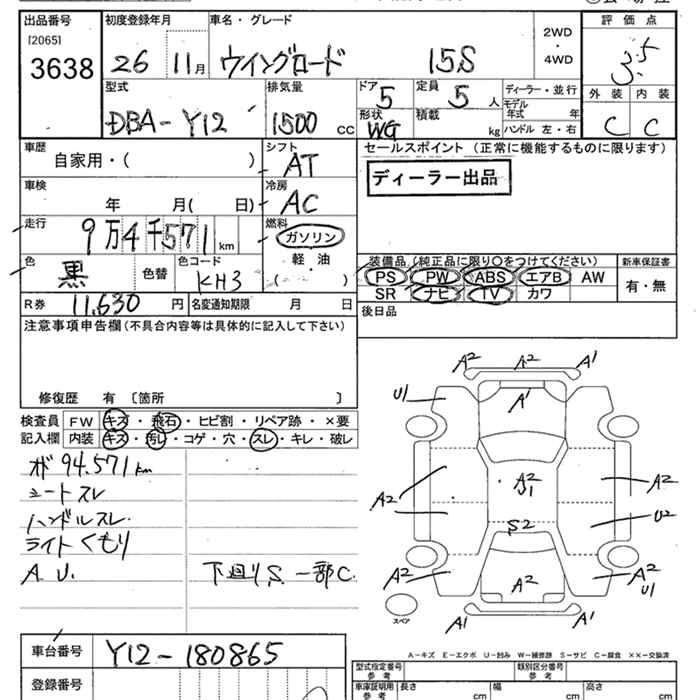 出品番号 初度登録年月 車名・グレード 2WD・4WD 評価点
[2065]
3638 26 11月 ウイングロード 15S 3.5
型式 排気量 ドア 定員 ディーラー・並行 外装 内装
DBA-Y12 1500 CC 5 5人 モデル年式 年
形状 積載 kg ハンドル 左・右 C C
WG
車歴 シフト セールスポイント (正常に機能するものに限ります)
自家用・( ) AT ディーラー出品
車検 冷房
年 月( 日) AC
走行 燃料
9万4千571km ガソリン
色 色替 色コード 軽油 装備品(純正品に限り○をつけてください) 新車保証書
黒 KH3 ・( ) PS PW ABS エアB AW 有・無
SR ナビ TV カワ
R券 11,630円 名変通知期限 月 日 後日品
注意事項申告欄(不具合内容等は具体的に記入して下さい)
修復歴 有 〔箇所 〕
検査員 FW キズ・飛石・ヒビ割・リペア跡・×要
記入欄 内装 キズ・汚レ・コゲ・穴・スレ・キレ・破レ
オド 94.571km
シートスレ
ハンドルスレ
ライトくもり
A.U. 下廻りS.一部C.
A2 A2 A1
U1 A1
A2 A2 U1 A2
S2 U2
A2 A2 A2 U1
スペア A1 A1
A-キズ E-エクボ U-凹み W-補修跡 S-サビ C-腐食 ××-交換済
車台番号 Y12-180865
型式指定番号 参考 類別区分番号 参考
登録番号 車庫証明用 参考 長さ cm 幅 cm 高さ cm